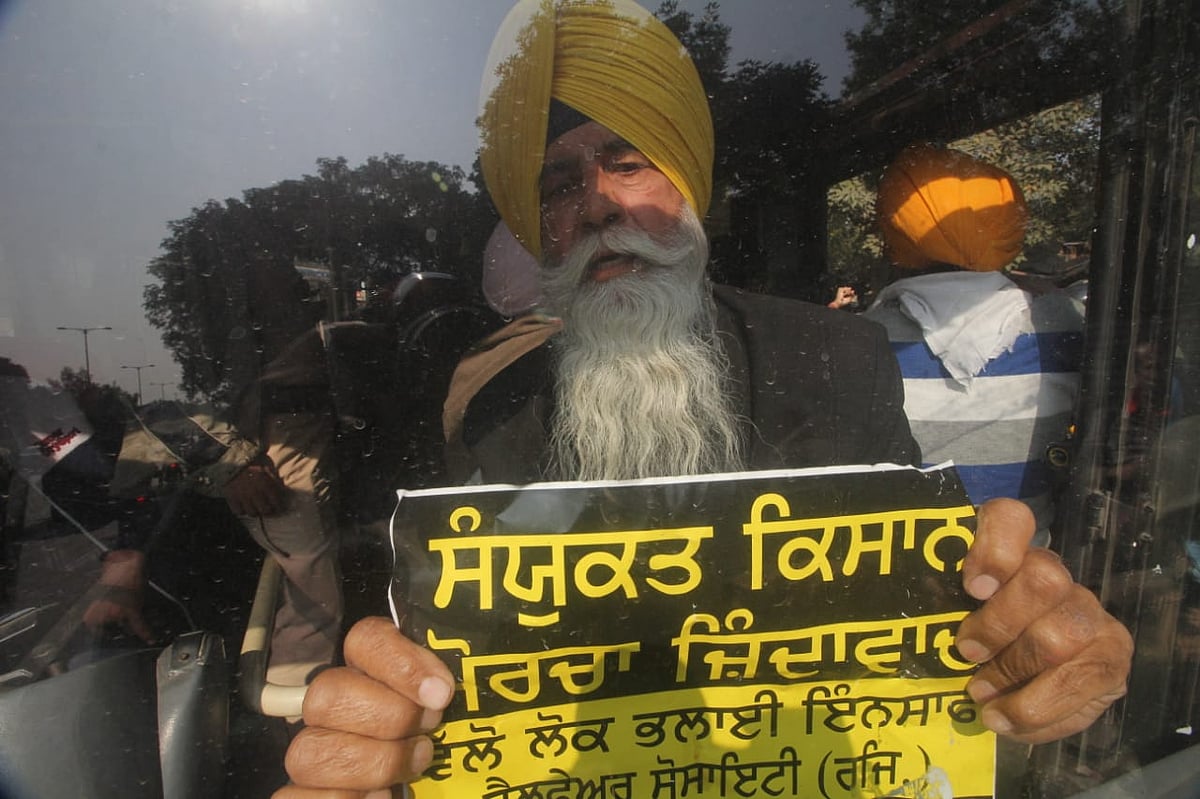 ਸੰਯੁਕਤ ਕਿਸਾਨ
ਮੋਰਚਾ ਜ਼ਿੰਦਾਵਾਦ
ਵੱਲੋ ਲੋਕ ਭਲਾਈ ਇੰਨਸਾਫ
ਵੈਲਫੇਅਰ ਸੋਸਾਇਟੀ (ਰਜਿ.)